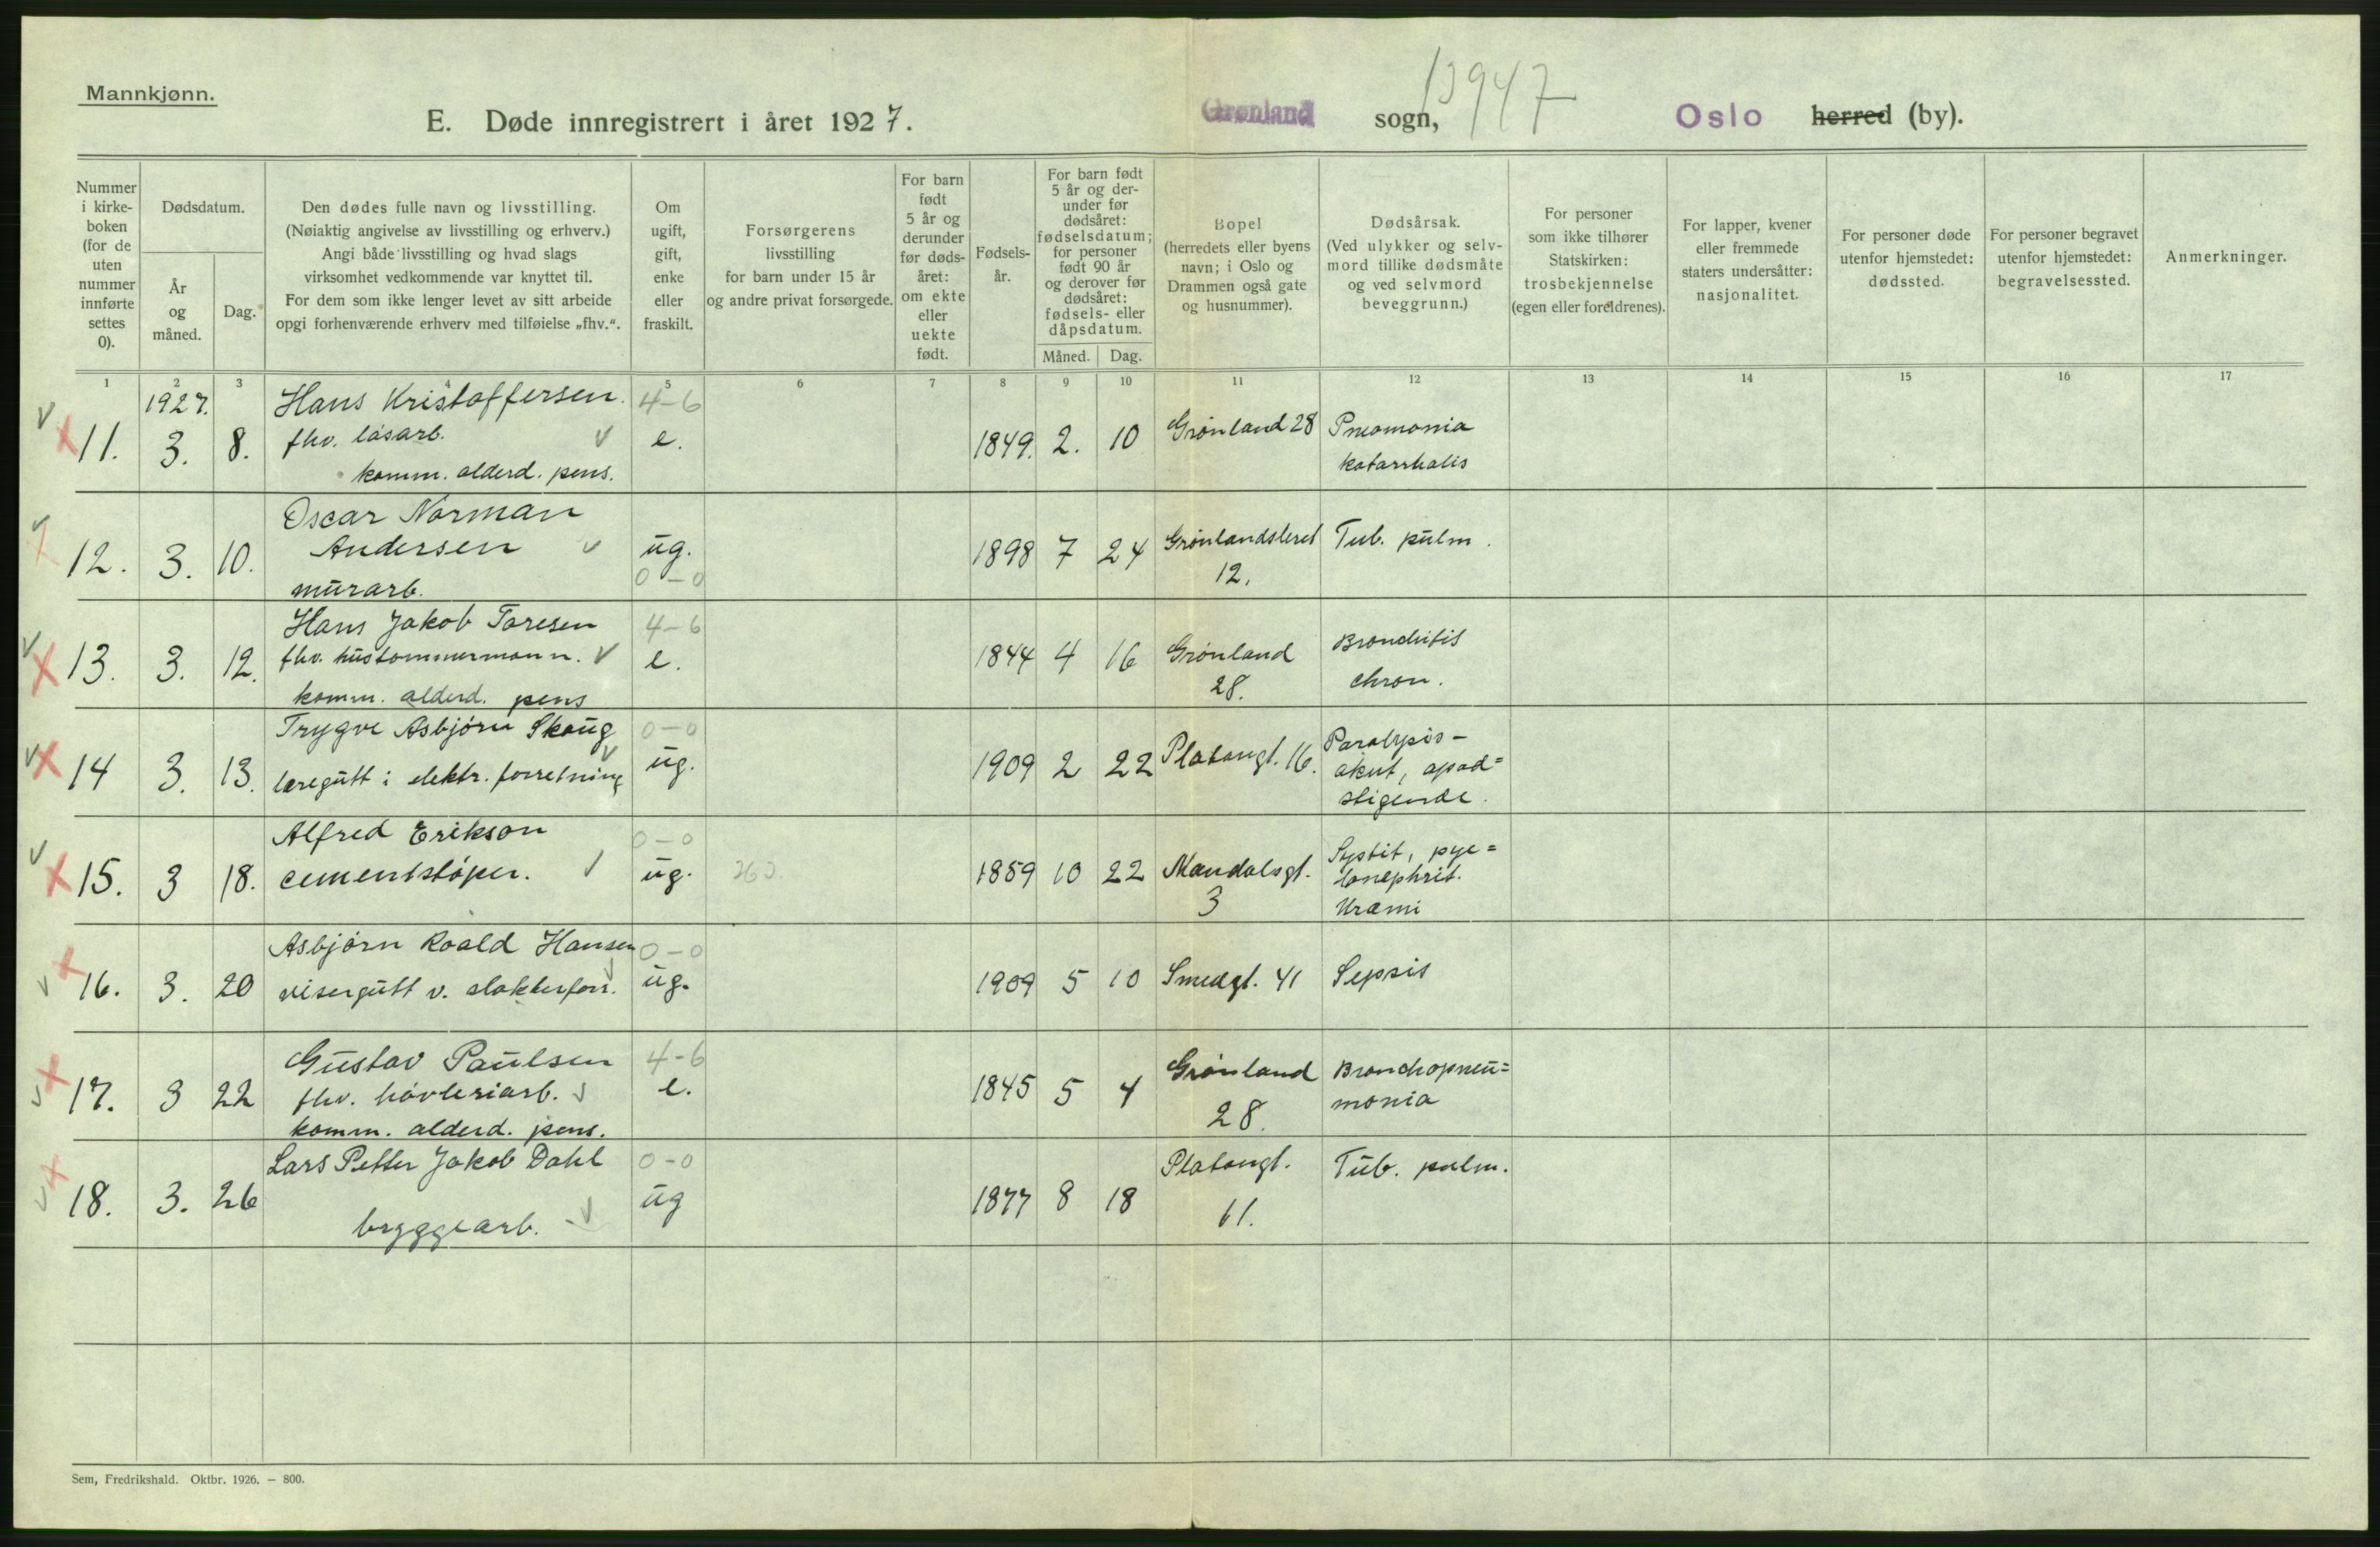 Mannkjønn.
E. Døde innregistrert i året 1927.
Grønland sogn, 13947 Oslo herred (by).
Nummer
i kirke-
boken
(for de
uten
nummer
innførte
settes
0).
Dødsdatum.
År
og
måned.
Dag.
Den dødes fulle navn og livsstilling.
(Nøiaktig angivelse av livsstilling og erhverv.)
Angi både livsstilling og hvad slags
virksomhet vedkommende var knyttet til.
For dem som ikke lenger levet av sitt arbeide
opgi forhenværende erhverv med tilføielse „fhv.“.
Om
ugift,
gift,
enke
eller
fraskilt.
Forsørgerens
livsstilling
for barn under 15 år
og andre privat forsørgede.
For barn
født
5 år og
derunder
før døds-
året:
om ekte
eller
uekte
født.
Fødsels-
år.
For barn født
5 år og der-
under før
dødsåret:
fødselsdatum;
for personer
født 90 år
og derover før
dødsåret:
fødsels- eller
dåpsdatum.
Måned. Dag.
Bopel
(herredets eller byens
navn; i Oslo og
Drammen også gate
og husnummer).
Dødsårsak.
(Ved ulykker og selv-
mord tillike dødsmåte
og ved selvmord
beveggrunn.)
For personer
som ikke tilhører
Statskirken:
trosbekjennelse
(egen eller foreldrenes).
For lapper, kvener
eller fremmede
staters undersåtter:
nasjonalitet.
For personer døde
utenfor hjemstedet:
dødssted.
For personer begravet
utenfor hjemstedet:
begravelsessted.
Anmerkninger.
1 2 3 4 5 6 7 8 9 10 11 12 13 14 15 16 17
1927. Hans Kristoffersen. 4-6
11. 3. 8. fhv. låsarb. e. 1849. 2. 10 Grønland 28 Pneomonia
komm. alderd. pens. katarrhalis
Oscar Norman
12. 3. 10. Andersen ug. 1898 7 24 Grønlandsleret Tub. pulm.
murarb. 0-0 12.
Hans Jakob Toresen 4-6
13. 3. 12. fhv. hustømmermann. e. 1844 4 16 Grønland Bronchitis
komm. alderd. pens 28. chron.
Trygve Asbjørn Skaug 0-0
14 3. 13. læregutt i elektr. forretning ug. 1909 2 22 Platougt. 16. Paralysis-
akut, opad=
stigende.
Alfred Erikson 0-0
15. 3 18. cementstøper. ug. 1859 10 22 Mandalsgt. pye=
3 lonephrit.
Urämi
Asbjørn Roald Hansen 0-0
16. 3. 20 visergutt v. slakterforr. ug. 1909 5 10 Smedgt. 41 Sepsis
Gustav Paulsen 4-6
17. 3 22 fhv. høvleriarb. e. 1845 5 4 Grønland Bronchopneu=
komm. alderd. pens. 28. monia
Lars Petter Jakob Dahl 0-0 Platougt. Tub. pulm.
18. 3. 26 bryggearb. ug 1877 8 18
Sem, Fredrikshald. Oktbr. 1926. — 800.